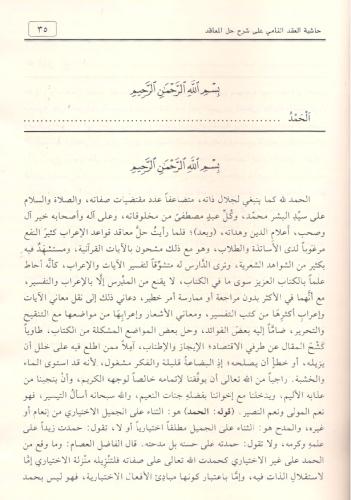 حاشية العقد النامي على شرح حل المعاقد
٣٥
بِسْمِ اللَّهِ الرَّحْمَنِ الرَّحِيمِ
اَلْحَمْدُ
بِسْمِ اللَّهِ الرَّحْمَنِ الرَّحِيمِ
الحمد لله كما ينبغي لجلال ذاته، متضاعفاً عدد مقتضيات صفاته، والصلاة والسلام
على سيّدِ البشر محمّد، وكُلِّ عبدٍ مصطفىً من مخلوقاته، وعلى آله وأصحابه خير آل
وصحب، أعلام الدين وهداته، (وبعد)؛ فلما رأيتُ حلَّ معاقد قواعد الإعراب كثيرَ النفع
مرغوباً لدى الأساتذة والطلاب، وهو مع ذلك مشحون بالآيات القرآنية، ومستشهَدٌ فيه
بكثير من الشواهد الشعرية، وترى الدَّارس له متشوِّقاً لتفسير الآيات والإعراب، كأنَّه أحاط
علماً بالكتاب العزيز سوى ما في الكتاب، لا يقنع من المدرِّس إلَّا بالإعراب والتفسير،
مع أنَّهما في الأكثر بدون مراجعة أو ممارسة أمر خطير، دعاني ذلك إلى نقل معاني الآيات
وإعراب أكثرها من كتب التفسير، ومعاني الأشعار وإعرابها من مواضعها مع التنقيح
والتحرير، ضامًّا إليه بعضَ الفوائد، وحل بعض المواضع المشكلة من الكتاب، طاوياً
كَشْحَ المقال عن طرفي الاقتصاد؛ الإيجاز والإطناب، آملاً ممن اطلع فيه على خلل أن
يزيله، أو خطأٍ أن يصلحه؛ إذ البضاعةُ قليلة والفكر مشغول، لأنه قد استوى الماء
والخشبة. راجياً من الله تعالى أن يوفِّقنا لإتمامه خالصاً لوجهه الكريم، وأن ينجينا من
عذابه الأليم، ويدخلنا مع إخواننا بفضله جنات النعيم، والله سبحانه أسألُ التيسير، فهو
نعم المولى ونعم النصير. (قوله: الحمد) هو: الثناء على الجميل الاختياري من إنعام أو
غيره، والمدح هو: الثناء على الجميل مطلقاً اختيارياً أو لا، تقول: حمدت زيداً على
علمه وكرمه، ولا تقول: حمدته على حسنه بل مدحته. قال الفاضل العصام: وما وقع من
الحمد على غير الاختياري كحمدت الله تعالى على صفاته فلتنزيله منزلة الاختياري إمَّا
لاستقلال الذات فيه، وإمَّا باعتبار كونها مبادئ الأفعال الاختيارية، فهو ليس بحمد